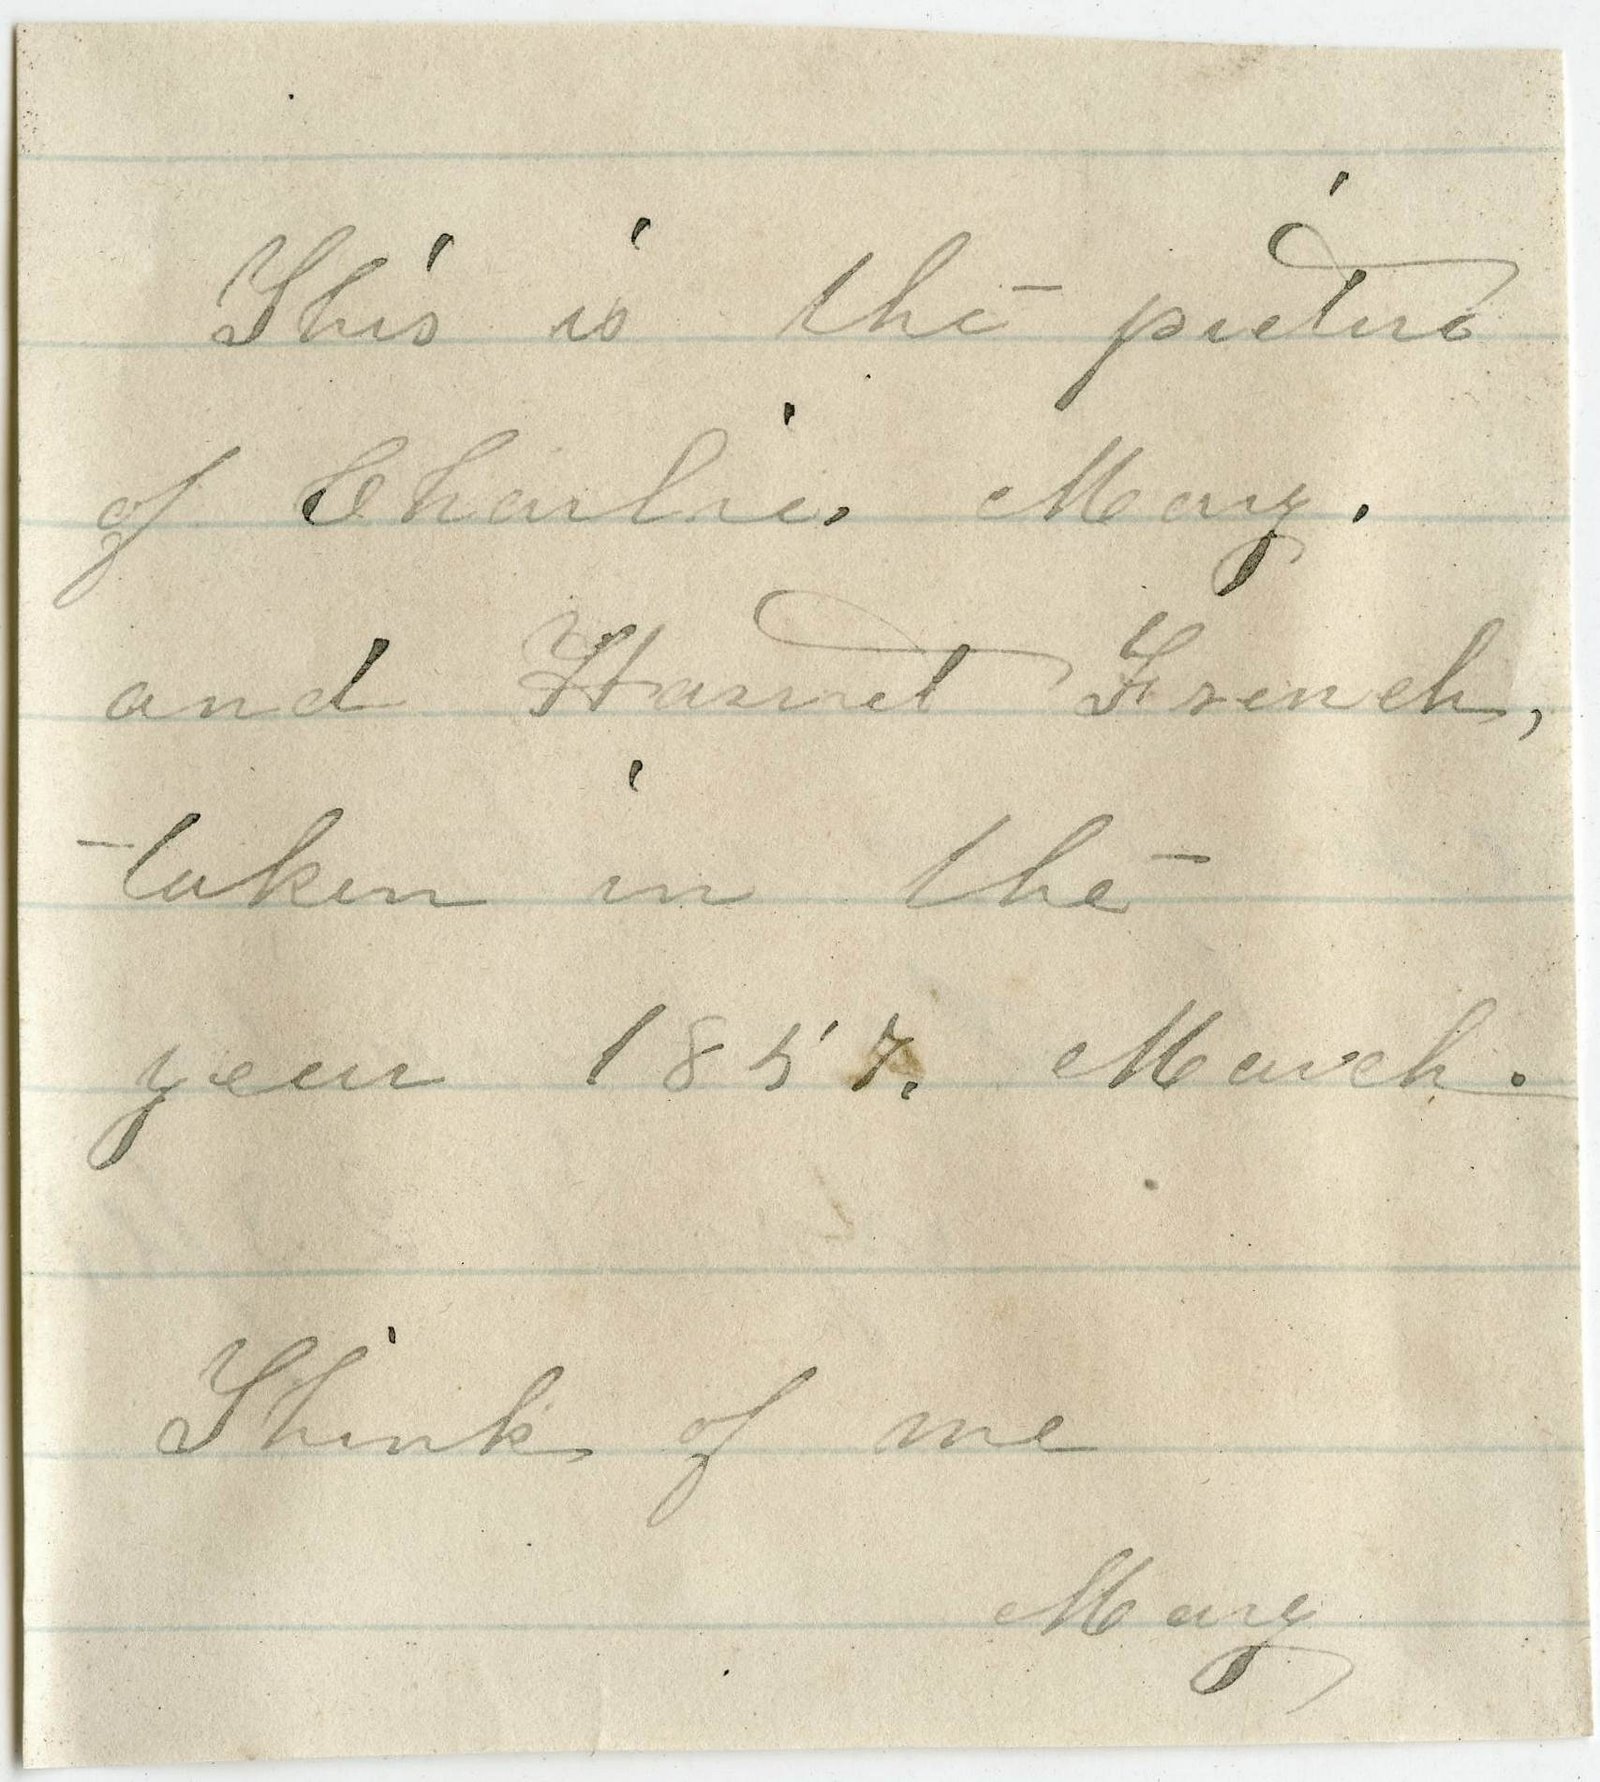 This is the picture
of Charlie, Mary.
and Harriet French,
taken in the
year 1857. March.
Think of me
Mary